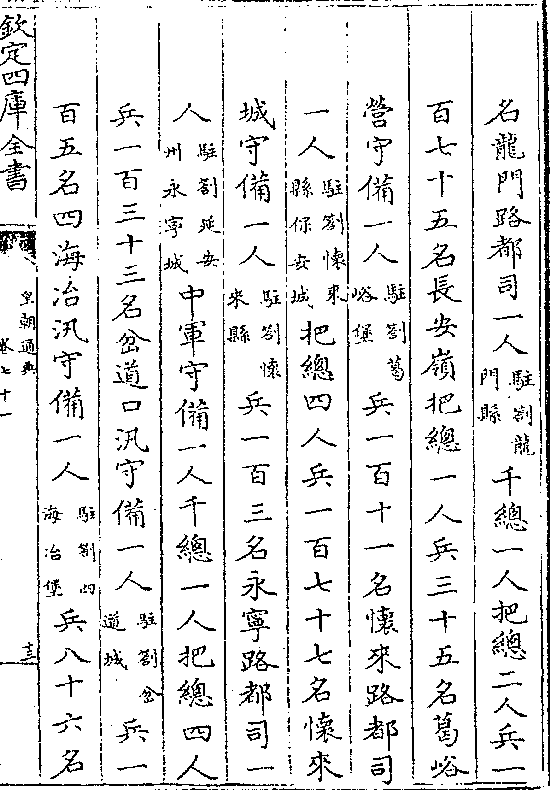 名龍門路都司一人駐劄龍門縣千總一人把總二人兵一
百七十五名長安嶺把總一人兵三十五名葛峪
營守備一人駐劄葛峪堡兵一百十一名懷來路都司
一人駐劄懷來縣保安城把總四人兵一百七十七名懷來
城守備一人駐劄懷來縣兵一百三名永寧路都司一
人駐劄延安州永寧城中軍守備一人千總一人把總四人
兵一百三十三名岔道口汛守備一人駐劄岔道城兵一
百五名四海冶汛守備一人駐劄四海冶堡兵八十六名
欽定四庫全書
皇朝通典
卷七十一
十三